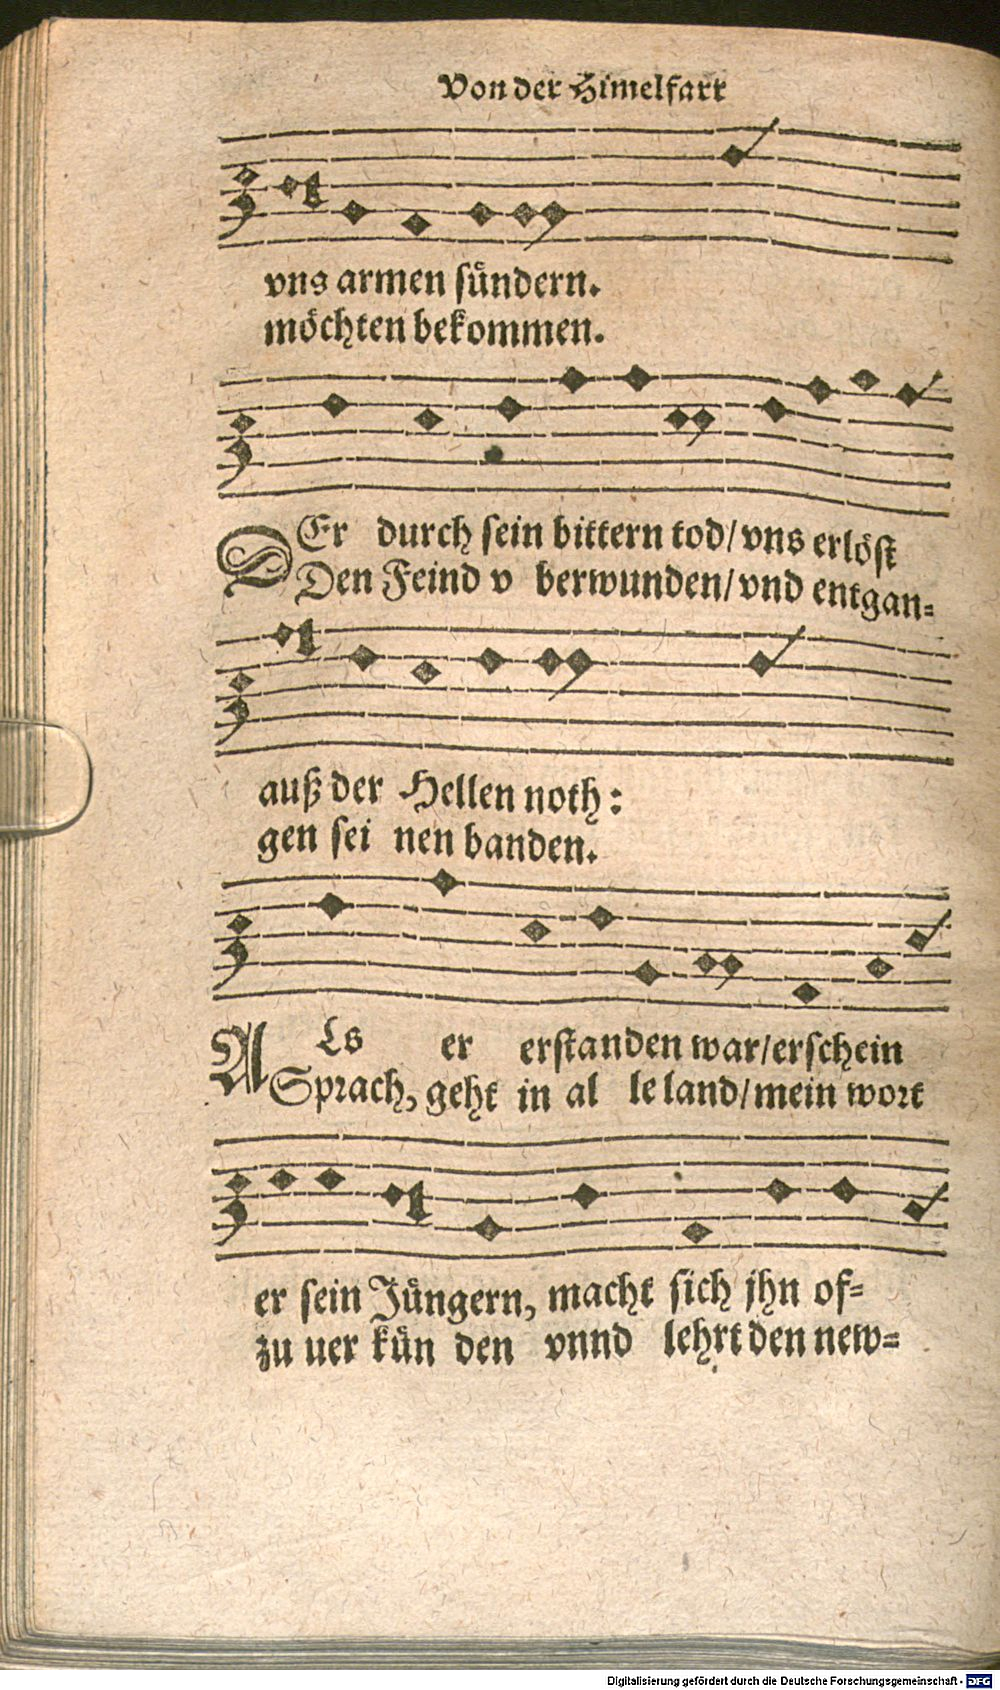 Von der Himelfart
vns armen sündern.
möchten bekommen.
DEr durch sein bittern tod/vns erlöst
Den Feind v berwunden/vnd entgan=
auß der Hellen noth:
gen sei nen banden.
ALs er erstanden war/erschein
Sprach, geht in al le land/mein wort
er sein Jüngern, macht sich jhn of=
zu uer kün den vnnd lehrt den new=
Digitalisierung gefördert durch die Deutsche Forschungsgemeinschaft - DFG